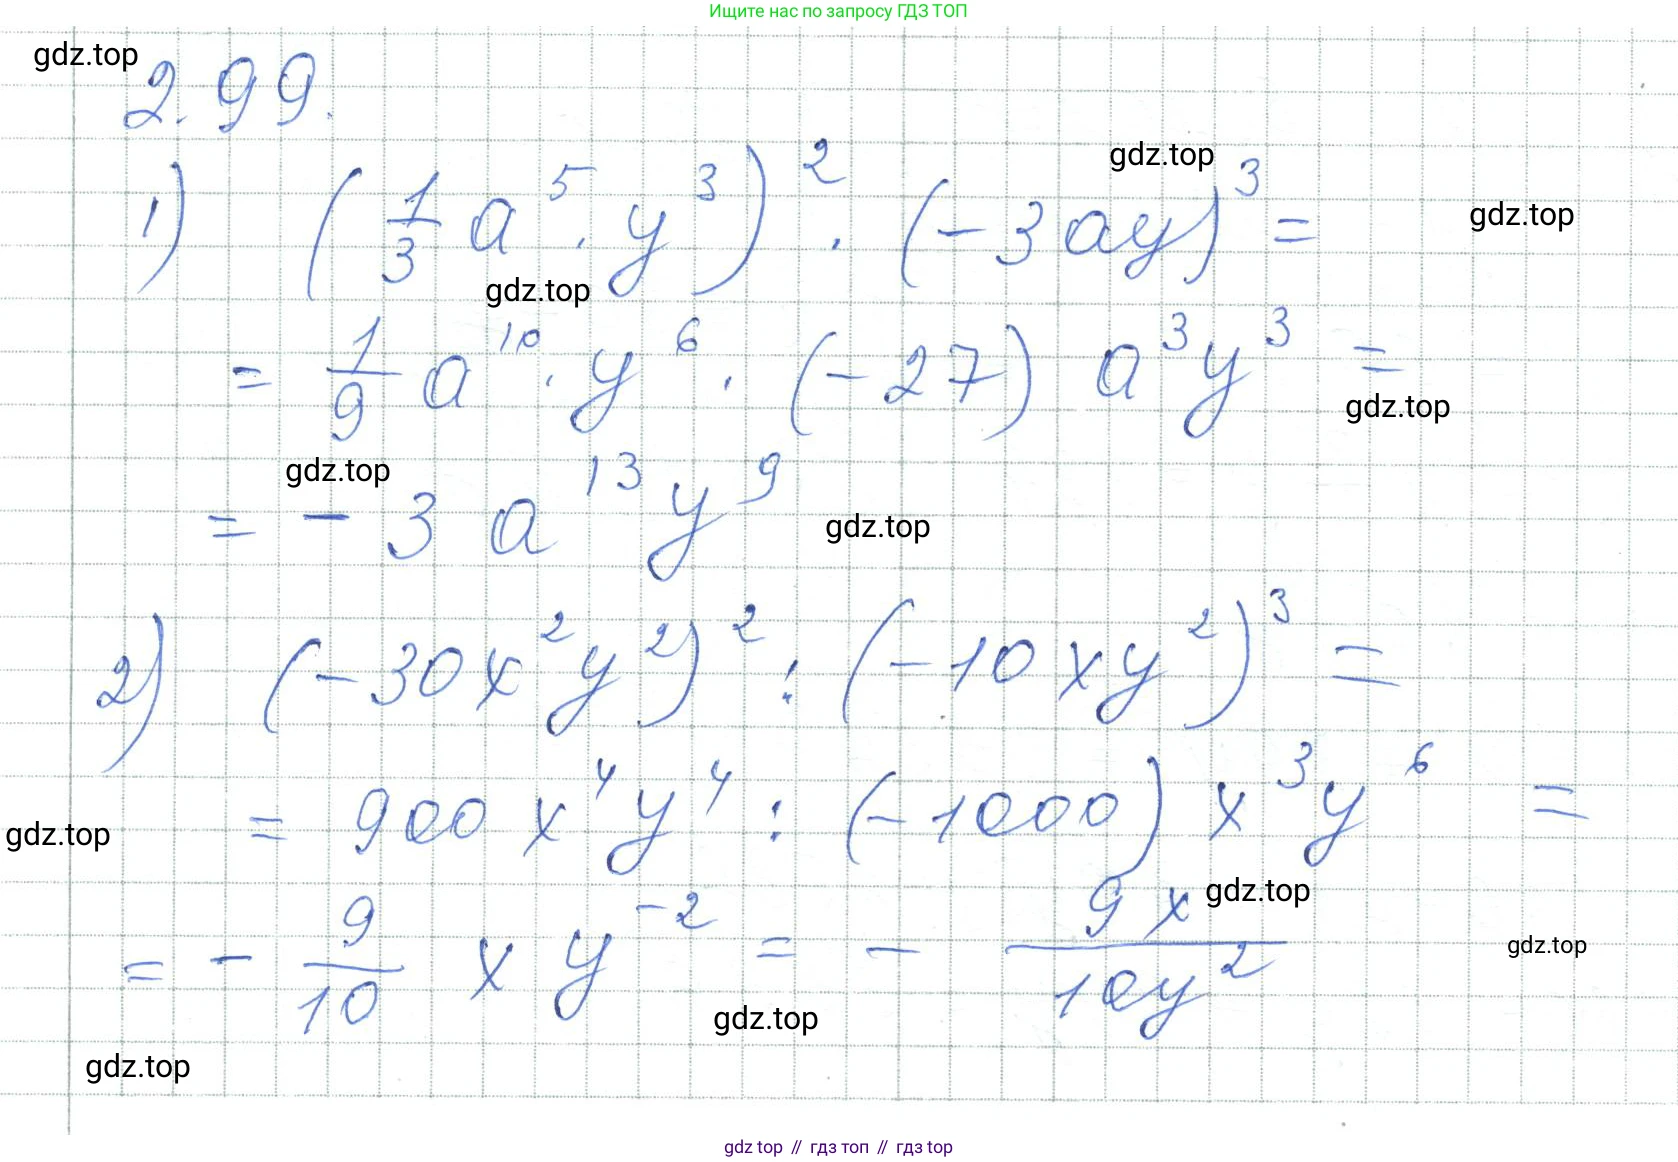 Ищите нас по запросу ГДЗ ТОП
gdz.top
2.99.
gdz.top
gdz.top
1) (1/3 a⁵ · y³)² · (-3ay)³ =
gdz.top
= 1/9 a¹⁰ · y⁶ · (-27) a³y³ =
gdz.top
gdz.top
= - 3 a¹³ y⁹
gdz.top
2) (-30x²y²)² : (-10xy²)³ =
= 900 x⁴y⁴ : (-1000) x³y⁶ =
gdz.top
gdz.top
= - 9/10 x y⁻² = - 9x/10y²
gdz.top
gdz.top
gdz.top
gdz top // гдз топ // гдз top